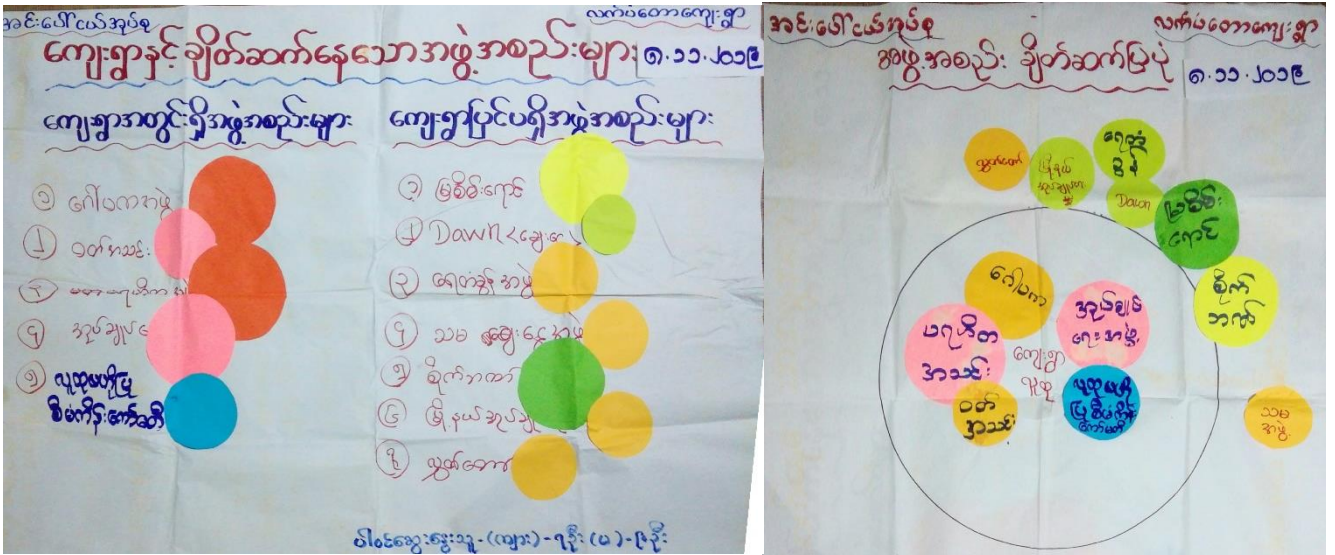 အင်းပေါ်ငယ်အုပ်စု
လက်ပံတောကျေးရွာ
ကျေးရွာနှင့် ချိတ်ဆက်နေသောအဖွဲ့အစည်းများ
၈.၁၁.၂၀၁၉
ကျေးရွာအတွင်းရှိအဖွဲ့အစည်းများ
၁ ဂေါပကအဖွဲ့
၂ ဝတ်အသင်း
၄ အုပ်ချုပ်ရေ
၅ လူထုဗဟိုပြု
စီမံကိန်းကော်မတီ
ကျေးရွာပြင်ပရှိအဖွဲ့အစည်းများ
၁ မြစိမ်းရောင်
၂ Dawn ချေး
၃ ရေတံခွန် အဖွဲ့
၄ သမ ချေးငွေအဖွဲ့
၅ စိုက်ဘဏ်
၆ မြို့နယ်အုပ်ချု
၇ လွှတ်တော်
ပါဝင်ဆွေးနွေးသူ-(ကျား)-၇ဦး (မ)-၉ဦး
အင်းပေါ်ငယ်အုပ်စု
လက်ပံတောကျေးရွာ
အဖွဲ့အစည်း ချိတ်ဆက်ပြပုံ
၈.၁၁.၂၀၁၉
လွှတ်တော်
မြို့နယ်
ရေတံ
ခွန်
Dawn
မြစိမ်း
ရောင်
စိုက်
ဘဏ်
ဂေါပက
ပရဟိတ
အသင်း
အုပ်ချုပ်
ရေးအဖွဲ့
ကျေးရွာ
လူထု
ဝတ်
အသင်း
လူထုဗဟို
ပြုစီမံကိန်း
ကော်မတီ
သမ
အဖွဲ့